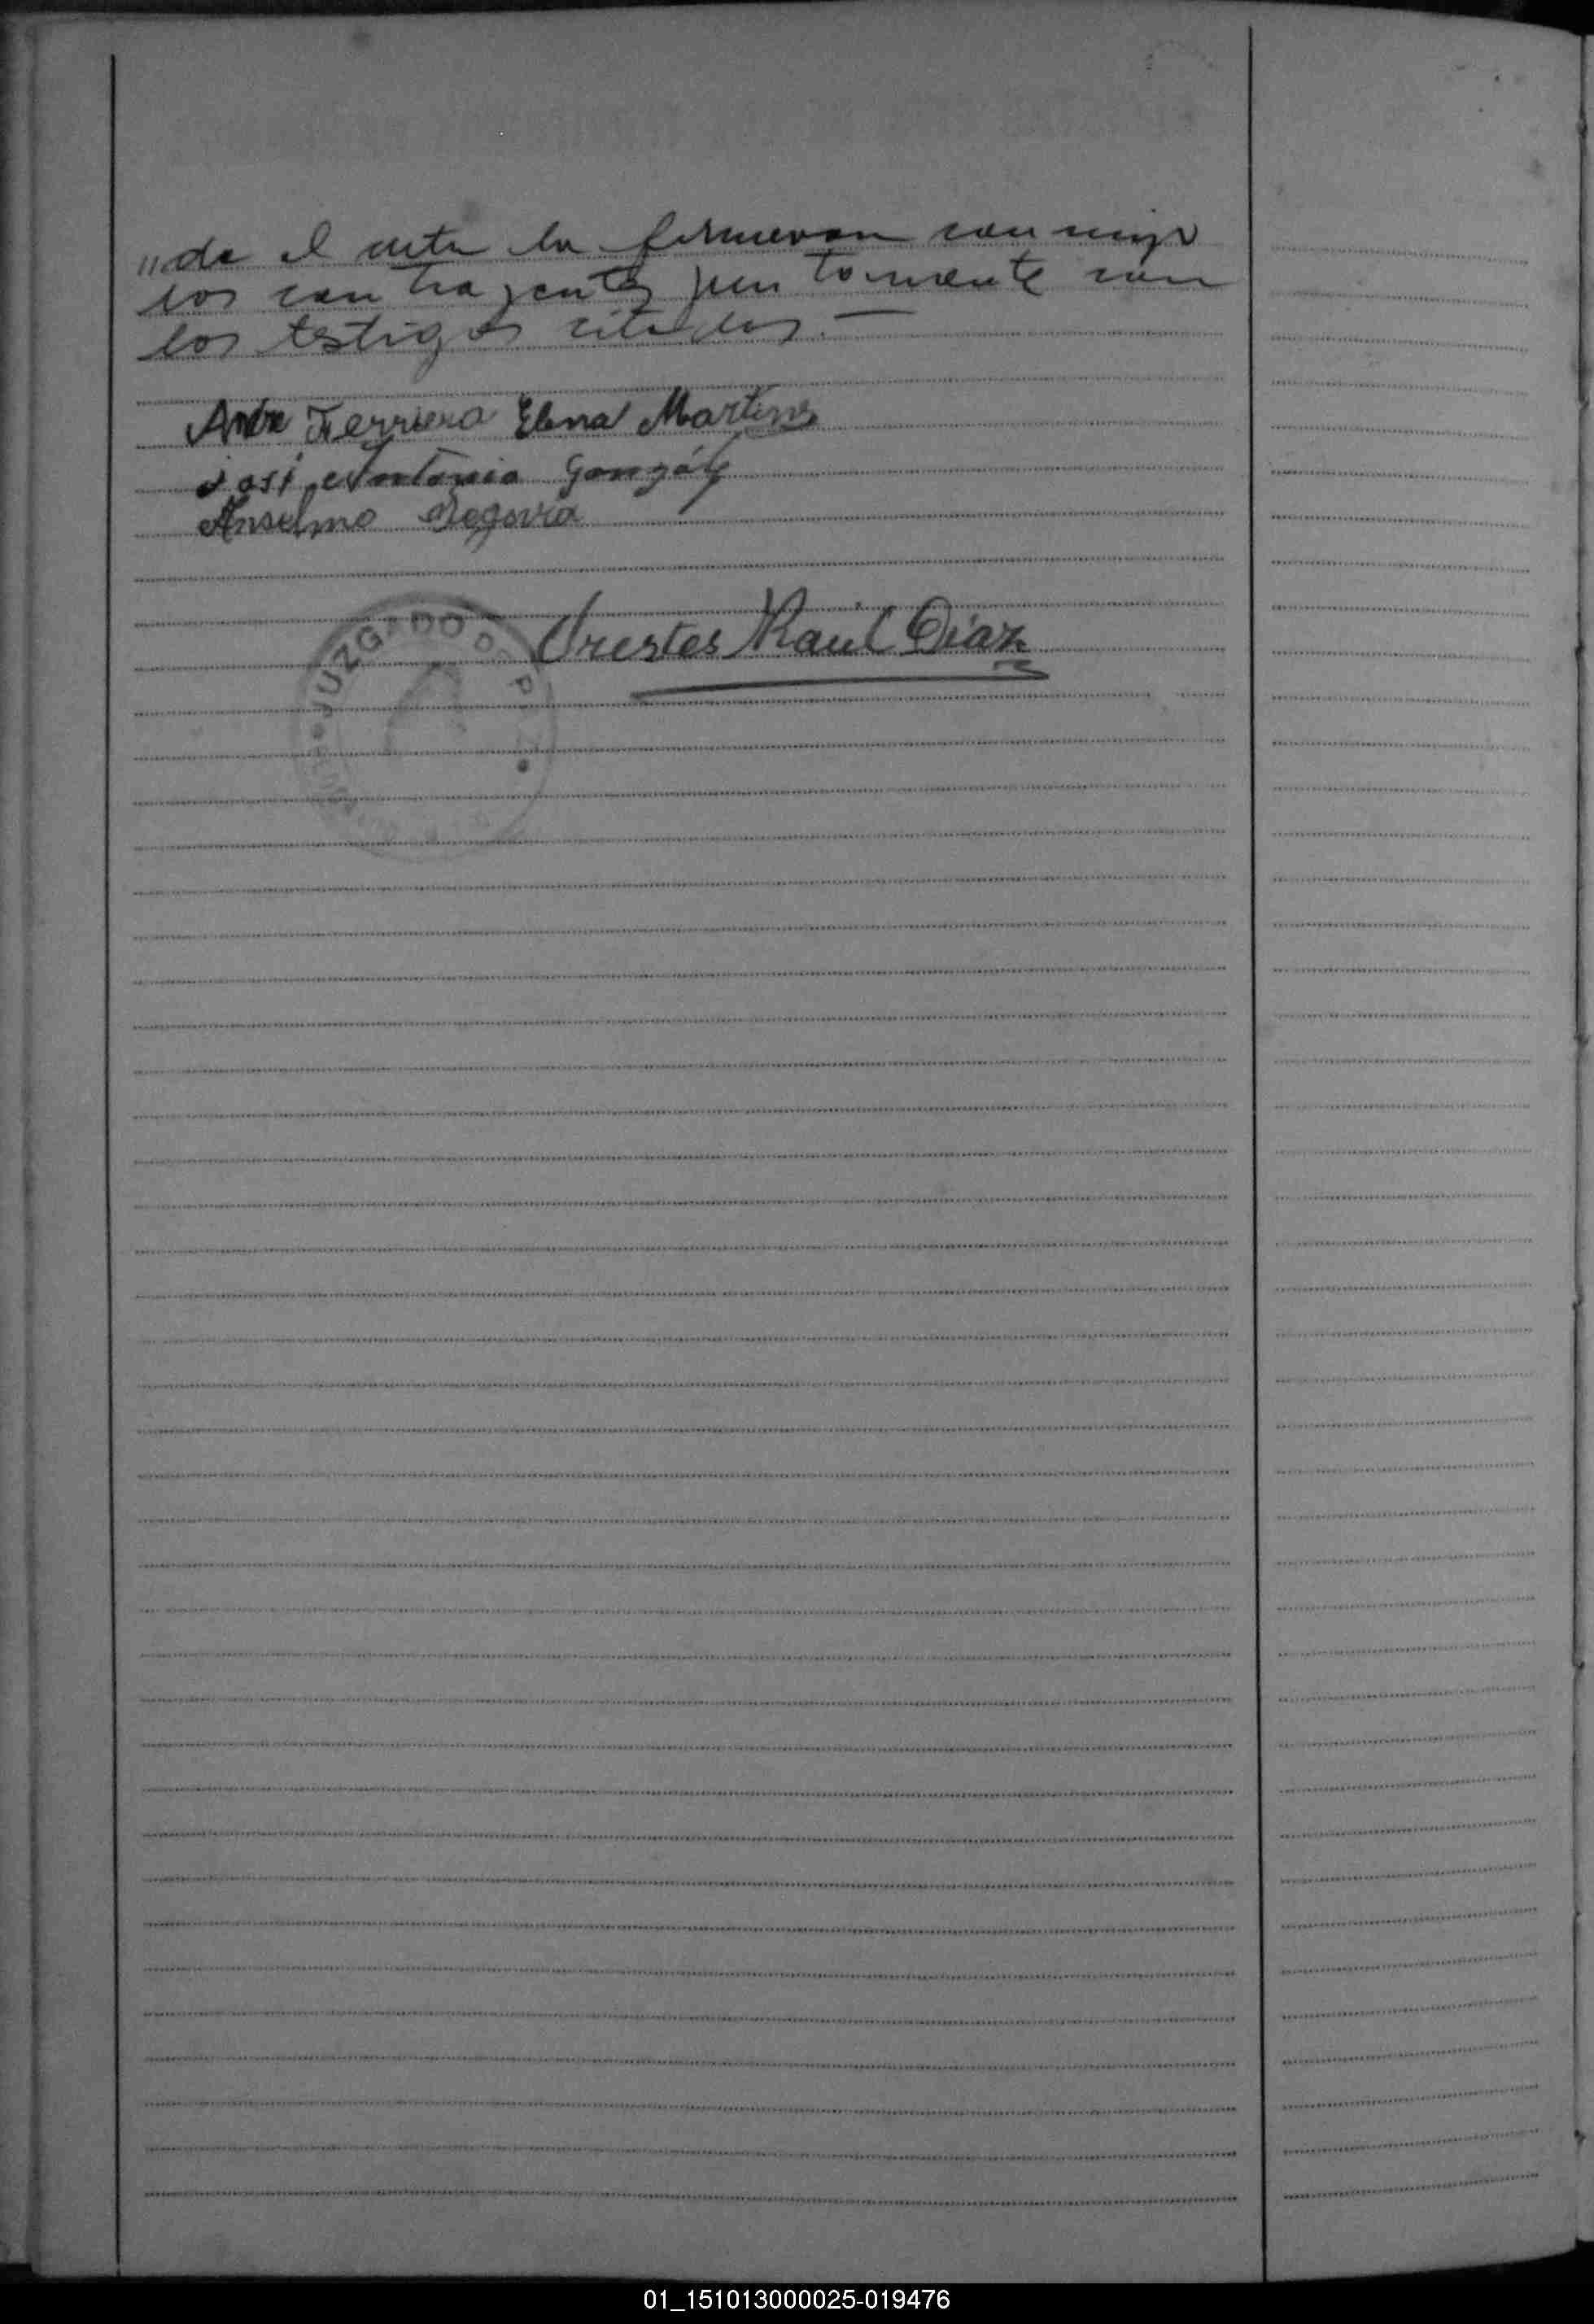 "da el acta la firmaron conmigo
los contrayentes juntamente con
los testigos citados. —
Ferriera Elena Martinez
José Antonio Gonzál
Anselmo Segovia
JUZGADO DE PAZ
Orestes Raúl Diaz
01_151013000025-019476